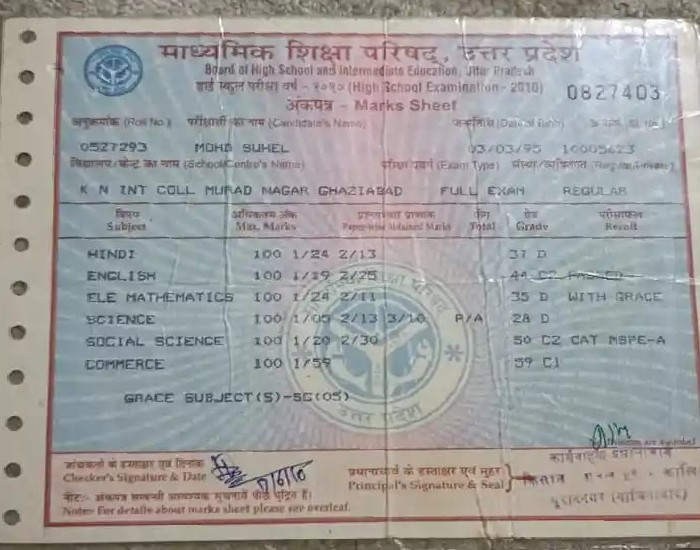 माध्यमिक शिक्षा परिषद्, उत्तर प्रदेश
Board of High School and Intermediate Education, Uttar Pradesh
हाई स्कूल परीक्षा वर्ष - २०१० (High School Examination - 2010) 0827403
अंकपत्र - Marks Sheet
अनुक्रमांक (Roll No.) परीक्षार्थी का नाम (Candidate's Name) जन्मतिथि (Date of Birth)
0527293 MOHD SUHEL 03/03/95 10005623
विद्यालय/केन्द्र का नाम (School/Centre's Name) परीक्षा प्रवर्ग (Exam Type) संस्था/व्यक्तिगत (Regular/Private)
K N INT COLL MURAD NAGAR GHAZIABAD FULL EXAM REGULAR
विषय अधिकतम अंक प्रश्नपत्रवार प्राप्तांक योग ग्रेड परीक्षाफल
Subject Max. Marks Paperwise Obtained Marks Total Grade Result
HINDI 100 1/24 2/13 37 D
ENGLISH 100 1/19 2/25 44 C2 PASSED
ELE MATHEMATICS 100 1/24 2/11 35 D WITH GRACE
SCIENCE 100 1/05 2/13 3/10 P/A 28 D
SOCIAL SCIENCE 100 1/20 2/30 50 C2 CAT MSPE-A
COMMERCE 100 1/59 59 C1
GRACE SUBJECT(S)-SC(05)
उत्तर प्रदेश
जांचकर्ता के हस्ताक्षर एवं दिनांक
Checker's Signature & Date
प्रधानाचार्य के हस्ताक्षर एवं मुहर
Principal's Signature & Seal
नोट:- अंकपत्र सम्बन्धी आवश्यक सूचनायें पीछे मुद्रित हैं।
Note:- For details about marks sheet please see overleaf.